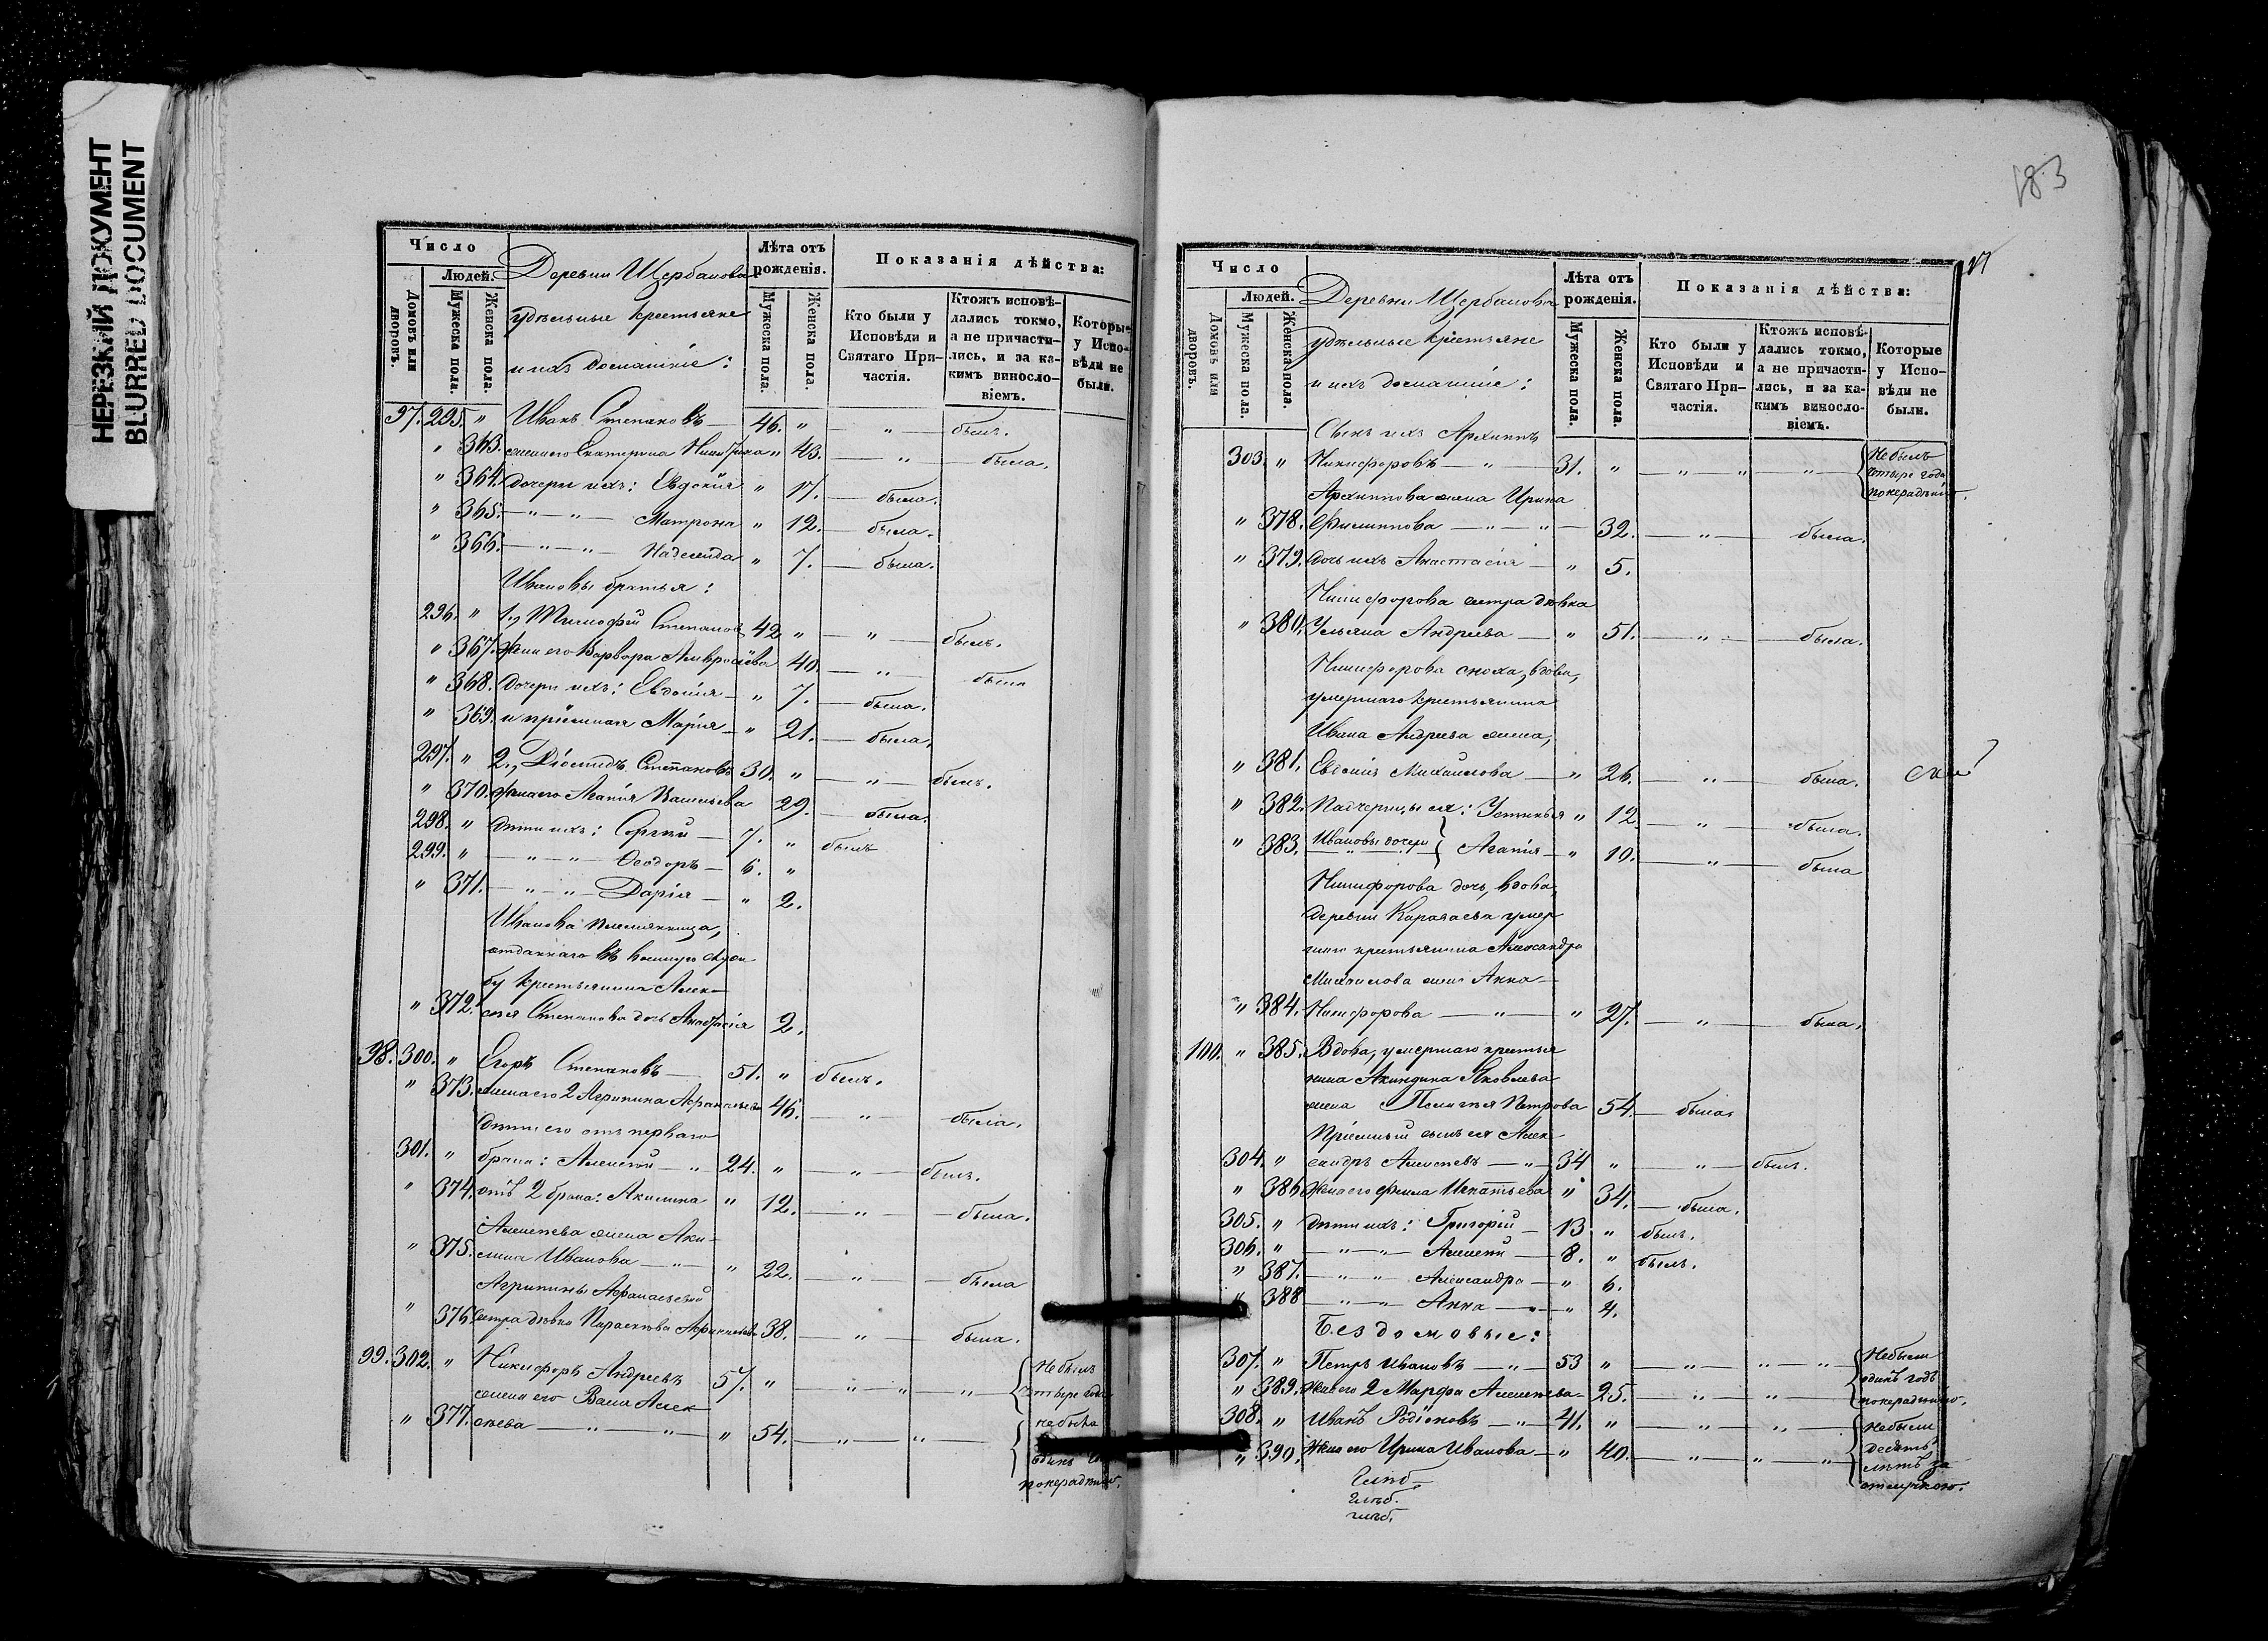 НЕРЕЗКИЙ ДОКУМЕНТ
BLURRED DOCUMENT
Число
Людей.
Домовъ или дворовъ.
Мужеска пола.
Женска пола.
Деревни Щербакова
удѣльные крестьяне
и ихъ домашніе:
Лѣта отъ рожденія.
Мужеска пола.
Женска пола.
Показанія дѣйства:
Кто были у Исповѣди и Святаго Причастія.
Ктожъ исповѣдались токмо, а не причастились, и за какимъ винословіемъ.
Которые у Исповѣди не были.
97. 295. " Иванъ Степановъ — 46. " — " — былъ.
" 363. жена его Екатерина " 43. — " — была.
" 364. дочери ихъ: Евдокія " 17. — была.
" 365. — " — " — Матрона " 12. — была.
" 366. — " — " — Надежда " 7. — была.
Ивановы братья:
296. " 1., Тимофей Степановъ 42 " — " — былъ.
" 367. жена его Варвара Амвросіева 40. — " — была
" 368. дочери ихъ: Евдокія — " 7. — была.
" 369. и пріемная Марія — " 21. — была.
297. " 2., Діомидъ Степановъ 30. " — " — былъ.
" 370. жена его Агапія Васильева 29. — была.
298. " дѣти ихъ: Сергій — 7. " былъ
299. " — " — " — Ѳеодоръ — 6. "
" 371. — " — " — Дарія — " 2.
Иванова племянница,
отданнаго въ военную служ
бу крестьянина Алек-
" 372. сѣя Степанова дочь Анастасія 2.
98. 300. " Егоръ Степановъ — 51. " былъ.
" 373. жена его 2 Агрипина Афанасьева 46. — " — была.
дѣти его отъ перваго
301. " брака: Алексѣй — " 24. " — " — былъ.
" 374. отъ 2 брака: Акилина " 12. — " — была.
Алексѣева жена Аки-
" 375. лина Иванова — " — " 22. — " — была
Агрипины Афанасьевой
" 376. сестра дѣвка Параскева Афанасьева 38. — " — была.
99. 302. " Никифоръ Андреевъ 57. " — " — " — " { Не былъ четыре года
жена его Васса Алек
" 377. сѣева — " — " — " 54. — " — " — { не была
одинъ годъ
по нерадѣнію.
183
Число
Людей.
Домовъ или дворовъ.
Мужеска пола.
Женска пола.
Деревни Щербакова
удѣльные крестьяне
и ихъ домашніе:
Лѣта отъ рожденія.
Мужеска пола.
Женска пола.
Показанія дѣйства:
Кто были у Исповѣди и Святаго Причастія.
Ктожъ исповѣдались токмо, а не причастились, и за какимъ винословіемъ.
Которые у Исповѣди не были.
Сынъ ихъ Архиппъ
303. " Никифоровъ — " — 31. " — " — " — " { Не былъ четыре года по нерадѣнію.
Архиппова жена Ирина
" 378. Филиппова — " — " — 32. — " — была.
" 379. дочь ихъ Анастасія — " 5.
Никифорова сестра дѣвка
" 380. Ульяна Андреева — " 51. — " — была.
Никифорова сноха, вдова,
умершаго крестьянина
Ивана Андреева жена,
" 381. Евдокія Михайлова — " 26. — " — была.
" 382. Падчерицы ея: Устинья " 12 — " — была.
" 383. Ивановы дочери } Агапія — " 10. — " — была
Никифорова дочь, вдова,
деревни Каратаева умер
шаго крестьянина Александра
Михайлова жена Анна —
" 384. Никифорова — " — " 27. — " — была.
100. " 385. Вдова, умершаго крестья
нина Акиндина Яковлева
жена Пелагея Петрова 54. — была.
Пріемный сынъ ея Алек
304. " сандръ Алексѣевъ — " — 34 " — " — былъ.
" 386 жена его Ѳекла Игнатьева " 34. — была.
305. " дѣти ихъ: Григорій — 13. " былъ.
306. " — " — " — Алексѣй — 8. " былъ.
" 387. — " — " Александра — " 6.
" 388 — " — " — Анна — " — " 4.
Бездомовые:
307. " Петръ Ивановъ — " — 53 " — " — " — " { Не были одинъ годъ
" 389. жена его 2 Марфа Алексѣева — 25. — " — " — по нерадѣнію.
308. " Иванъ Родіоновъ — " — 41. " — " — " — { Не были десять
" 390. жена его Ирина Иванова — " 40. — " — " — " { лѣтъ за
отлучкою.